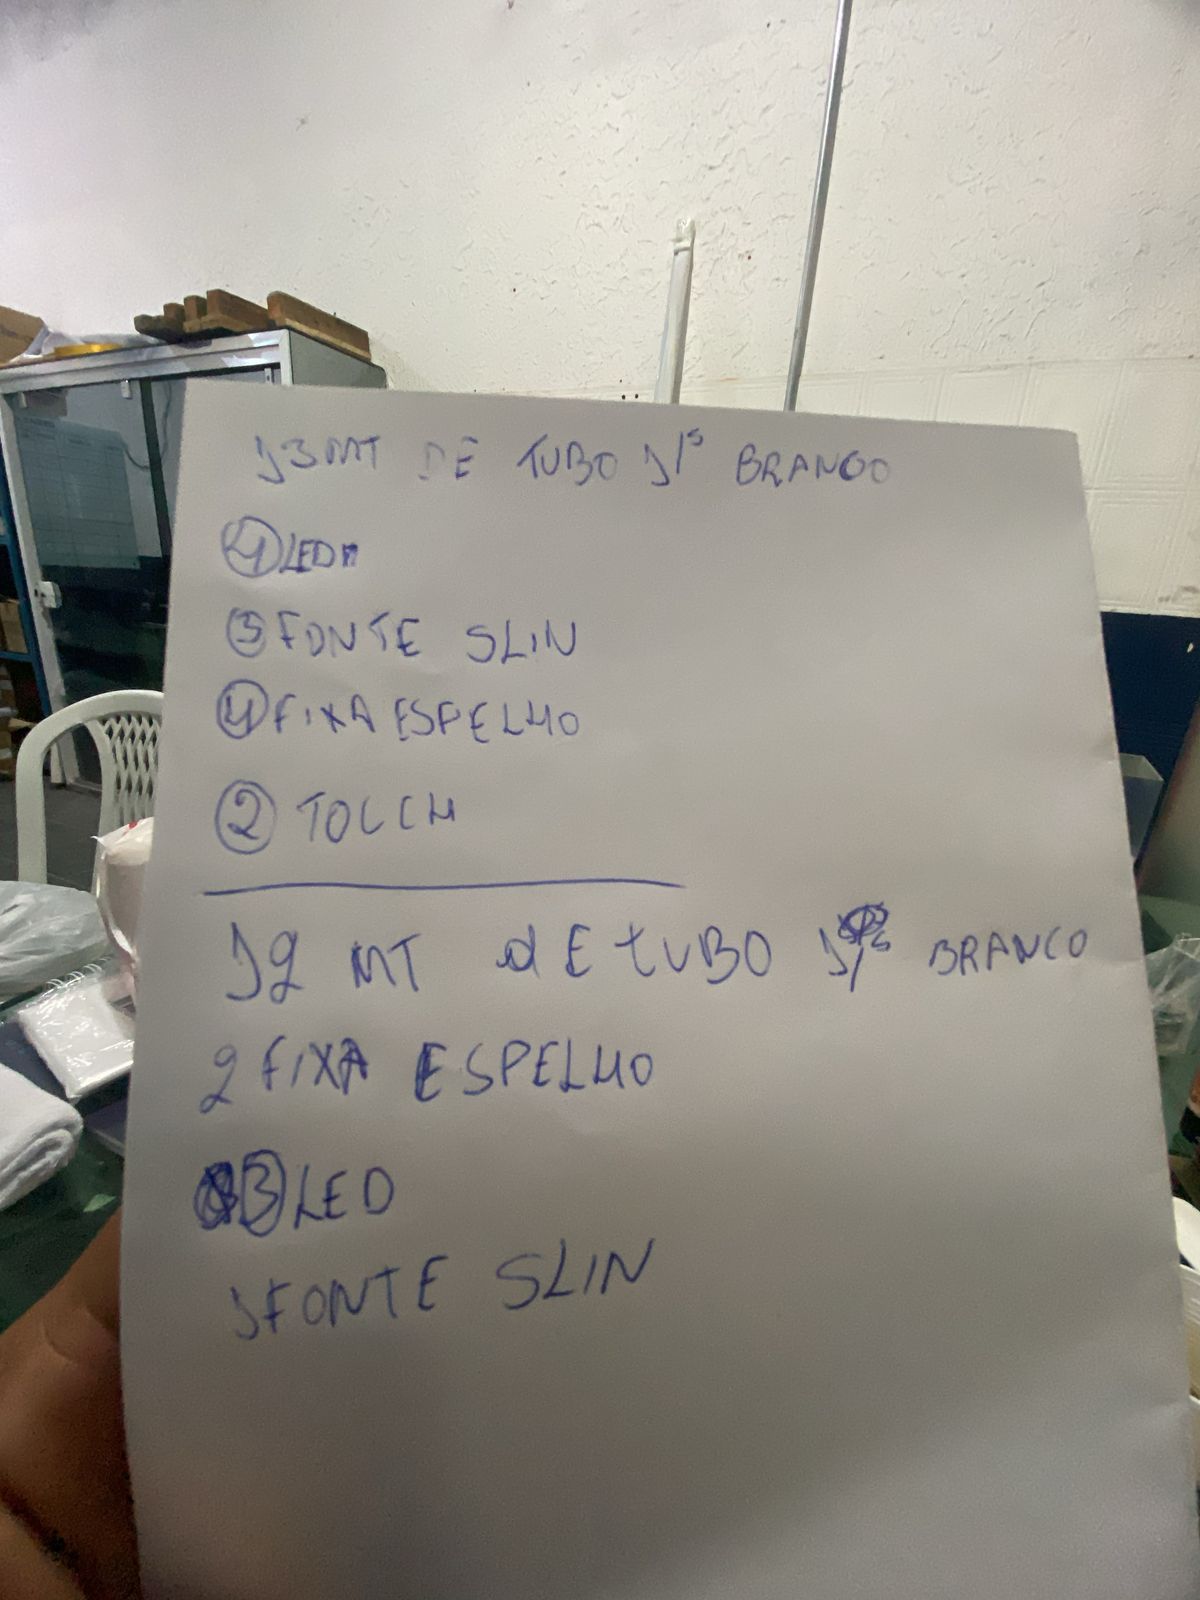 13MT DE TUBO 1/5 BRANCO
4 LED
3 FONTE SLIN
4 FIXA ESPELHO
2 TOCCH
12 MT dE tUBO 1/5 BRANCO
2 FIXA ESPELHO
3 LED
1FONTE SLIN